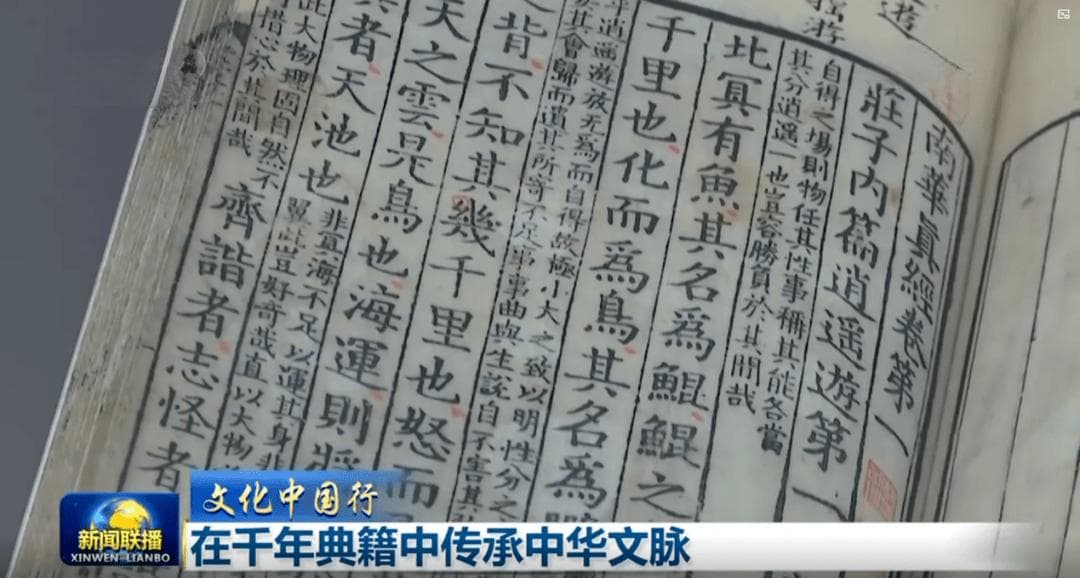 南華眞經卷第一
莊子内篇逍遥遊第一
自得之場則物任其性事稱其能各當
其分逍遥一也豈容勝負於其間哉
北冥有魚其名爲鯤鯤之
千里也化而爲鳥其名爲
逍遥遊放无爲而自得故極小大之致以明性分之
其會歸而遺其所寄不足事事曲與生說自不害其
背不知其幾千里也怒而
天之雲是鳥也海運則將
者天池也
非冥海不足以運其身非
翼此豈好奇哉直以大物
此大物理固自然不
措心於其間哉
齊諧者志怪者
文化中国行
新闻联播
XINWEN-LIANBO
在千年典籍中传承中华文脉